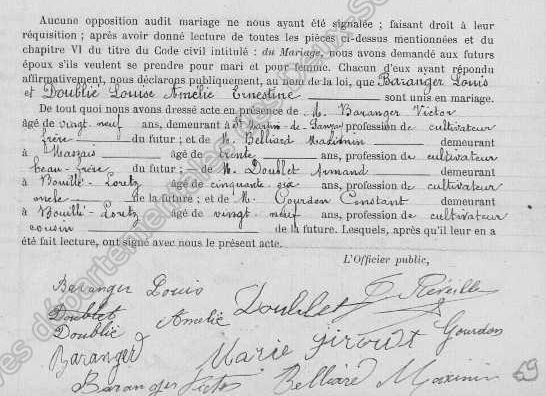 Aucune opposition audit mariage ne nous ayant été signalée ; faisant droit à leur
réquisition ; après avoir donné lecture de toutes les pièces ci-dessus mentionnées et du
chapitre VI du titre du Code civil intitulé : du Mariage, nous avons demandé aux futurs
époux s'ils veulent se prendre pour mari et pour femme. Chacun d'eux ayant répondu
affirmativement, nous déclarons publiquement, au nom de la loi, que Baranger Louis
et Doublié Louise Amélie Ernestine sont unis en mariage.
De tout quoi nous avons dressé acte en présence de M. Baranger Victor
âgé de vingt neuf ans, demeurant à St Martin-de-Sanzay profession de cultivateur
frère du futur ; et de M. Belliard Maximin demeurant
à Massais âgé de trente ans, profession de cultivateur
beau-frère du futur ; de M. Doublet Armand demeurant
à Bouillé-Loretz âgé de cinquante six ans, profession de cultivateur
oncle de la future ; et de M. Gourdon Constant demeurant
à Bouillé-Loretz âgé de vingt neuf ans, profession de cultivateur
cousin de la future. Lesquels, après qu'il leur en a
été fait lecture, ont signé avec nous le présent acte.
L'Officier public,
Baranger Louis
Doublet
Doublié Amélie Doublet
Baranger Marie Girout Gourdon
Baranger Victor Belliard Maximin
59